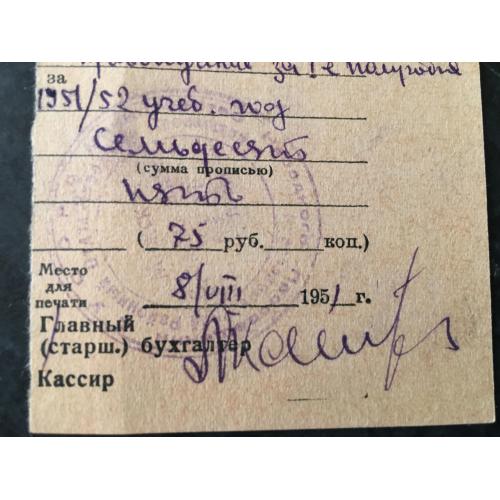 за 1е полугодие
за
1951/52 учеб. год
Семьдесят
(сумма прописью)
пять
( 75 руб. коп.)
Место
для
печати
8/VIII 1951 г.
Главный
(старш.) бухгалтер
Кассир